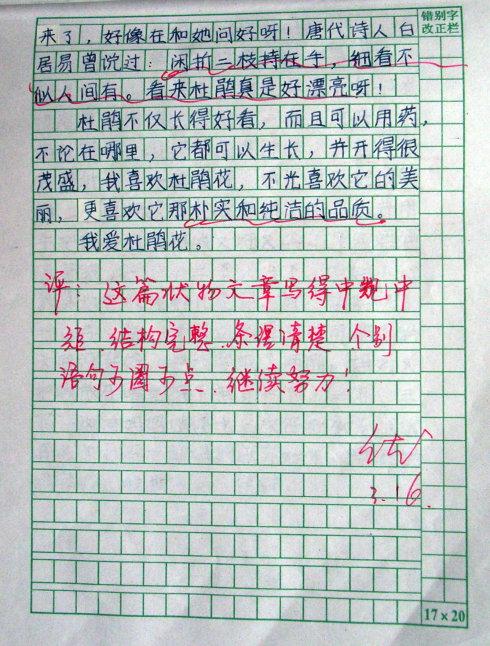 错别字
改正栏
来了，好像在和她问好呀！唐代诗人白
居易曾说过：闲折二枝持在手，细看不
似人间有。看来杜鹃真是好漂亮呀！
杜鹃不仅长得好看，而且可以用药，
不论在哪里，它都可以生长，并开得很
茂盛，我喜欢杜鹃花，不光喜欢它的美
丽，更喜欢它那朴实和纯洁的品质。
我爱杜鹃花。
评：这篇状物文章写得中规中
矩．结构完整．条理清楚 个别
语句可圈可点．继续努力！
优
3.16.
17×20